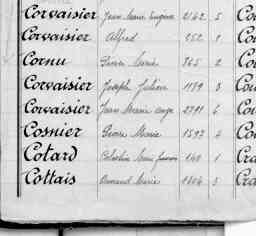 Corvaisier Jean Marie 2162 5 Co
Corvaisier Alfred 252 1 Co
Cornu Pierre Marie 365 2 Co
Corvaisier Joseph Julien 1179 3 Co
Corvaisier Jean Marie Ange 2791 6 Co
Cosnier Pierre Marie 1597 4 Co
Cotard 140 1 Cra
Cottais Armand Marie 1804 5 Cra